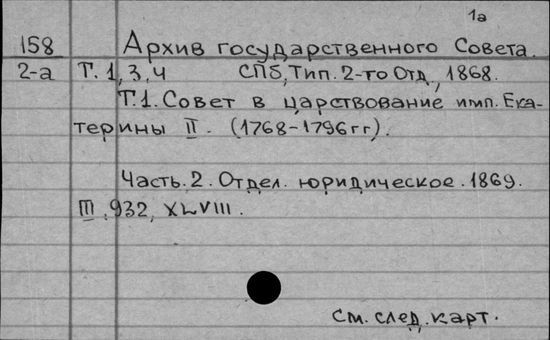 1а
158 Архив государственного Совета.
2-а Т. 1, 3, 4 СПб, Тип. 2-го Отд, 1868.
Т.1. Совет в царствование имп. Ека-
терины II. (1768-1796гг).
Часть. 2. Отдел. юридическое. 1869.
III, 932, XLVIII.
См. след. карт.